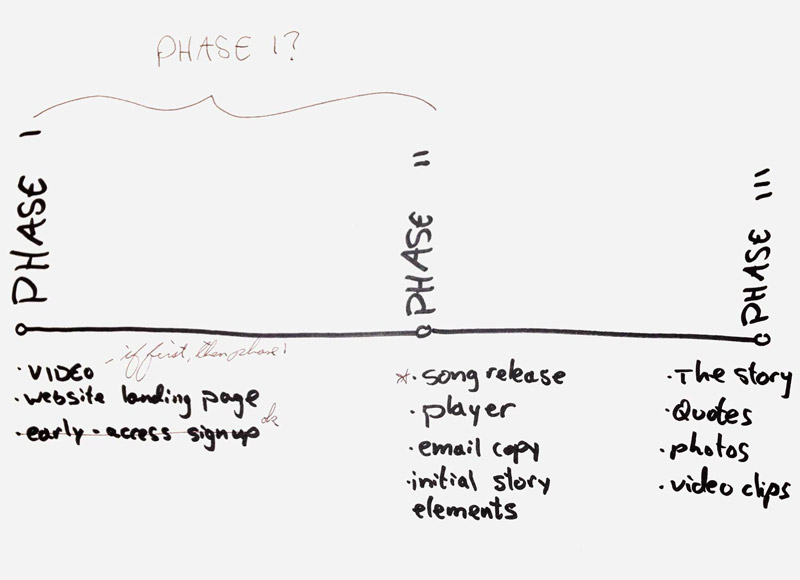 PHASE 1?
PHASE I
PHASE II
PHASE III
- if first, then phase 1
· VIDEO
· website landing page
· early-access signup
* · song release
· player
· email copy
· initial story
elements
· The story
· Quotes
· photos
· video clips